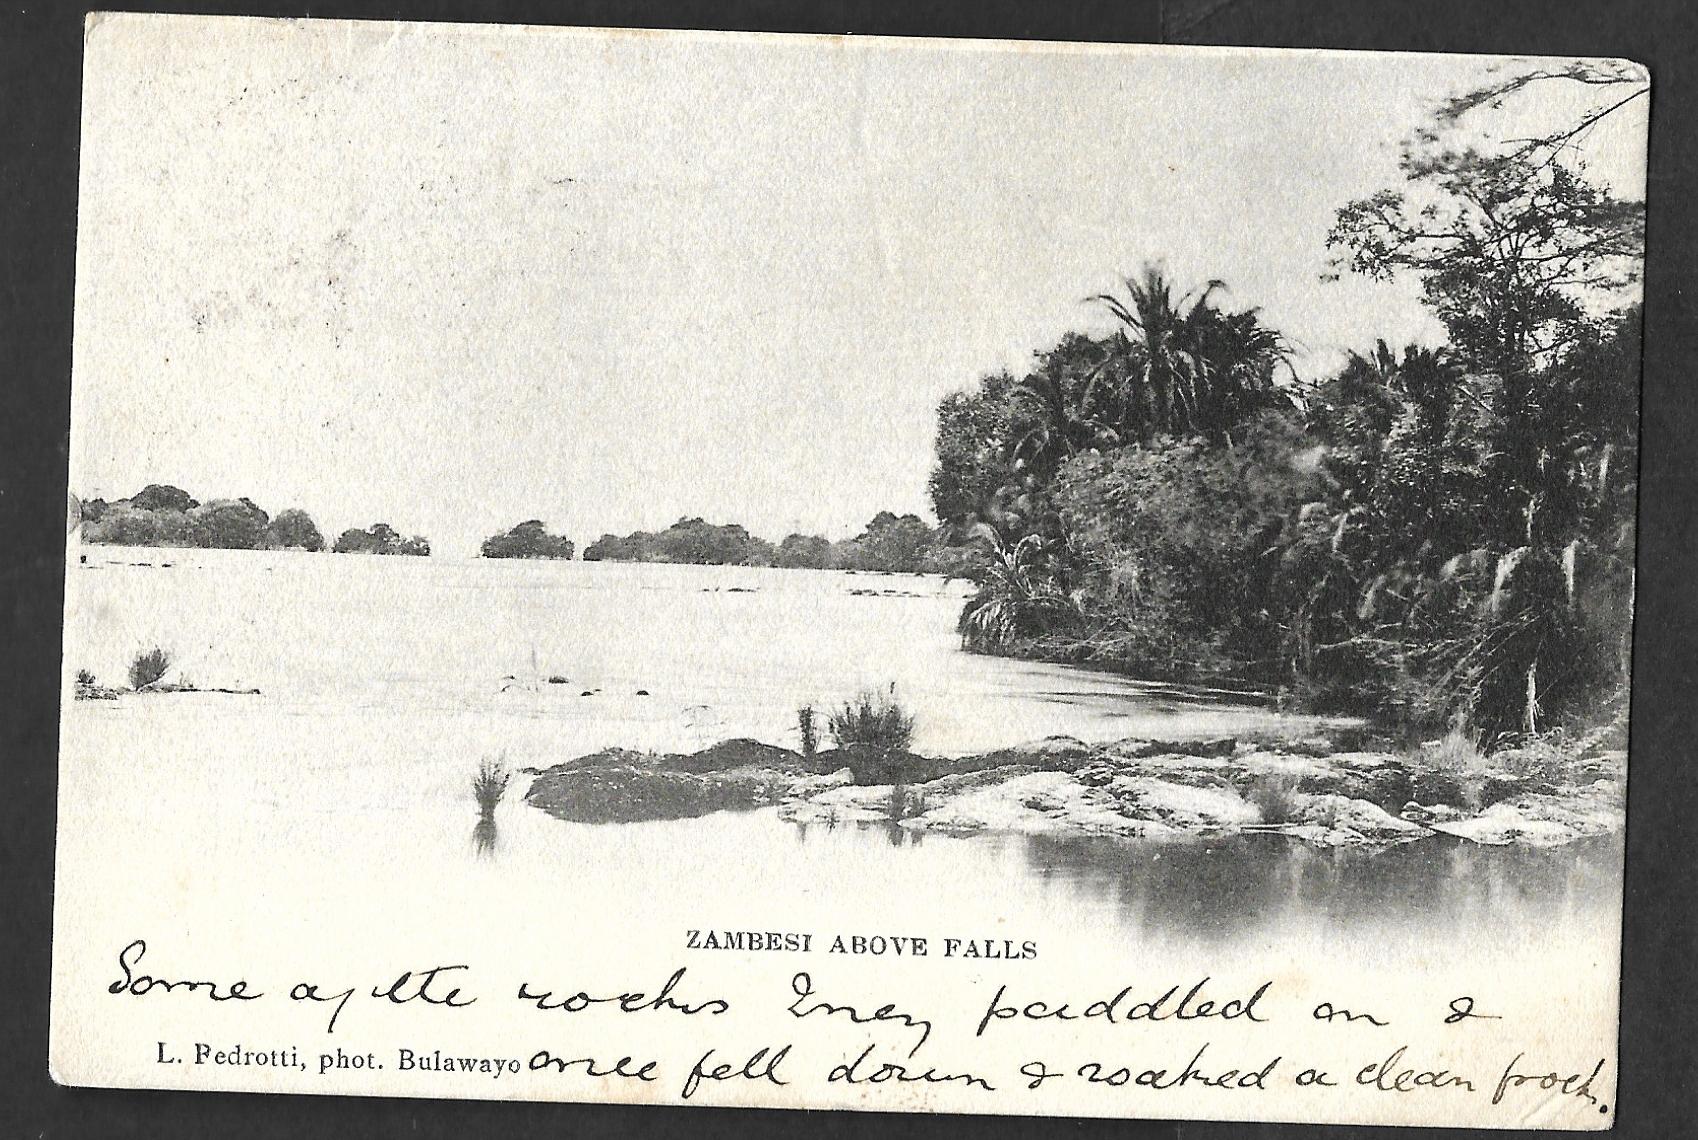 ZAMBESI ABOVE FALLS
Some of the rocks Iney paddled on &
L. Pedrotti, phot. Bulawayo
once fell down & soaked a clean frock.